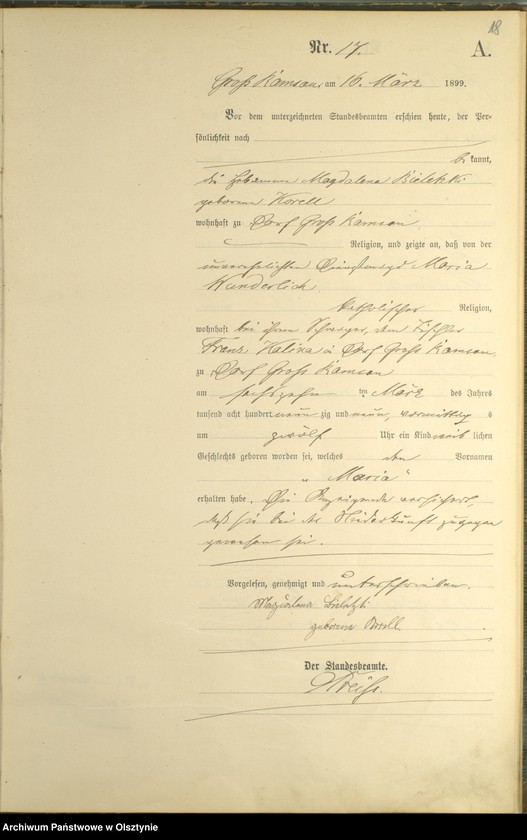 18
Nr. 17. A.
Groß Ramsau, am 16. März 1899.
Vor dem unterzeichneten Standesbeamten erschien heute, der Per-
sönlichkeit nach
be kannt,
die Hebamme Magdalena Bieletzki
geborene Korell
wohnhaft zu Dorf Groß Ramsau
Religion, und zeigte an, daß von der
unverehelichten Dienstmagd Maria
Wunderlich
katholischer Religion,
wohnhaft bei ihrem Schwager, dem Tischler
Franz Kalina in Dorf Groß Ramsau,
zu Dorf Groß Ramsau
am sechszehn ten März des Jahres
tausend acht hundert neun zig und neun, vormittag s
um zwölf Uhr ein Kind weib lichen
Geschlechts geboren worden sei, welches den Vornamen
„Maria“
erhalten habe. Die Anzeigende versichert,
daß sie bei der Niederkunft zugegen
gewesen sei.
Vorgelesen, genehmigt und unterschrieben.
Magdalena
geborene
Der Standesbeamte.
Archiwum Państwowe w Olsztynie